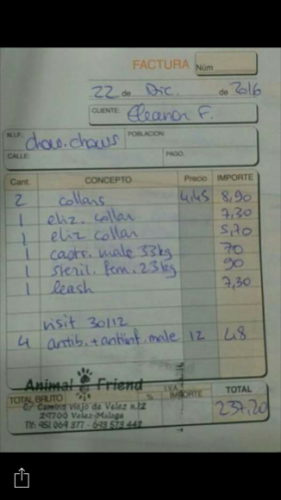 FACTURA Núm
22 de Dic. de 2016
CLIENTE: Eleanor F.
N.I.F.: chow-chows POBLACIÓN:
CALLE: PAGO:
Cant. CONCEPTO Precio IMPORTE
2 collars 4,45 8,90
1 eliz. collar 7,30
1 eliz collar 5,70
1 castr. male 33kg 70
1 steril. fem. 23kg 90
1 leash 7,30
visit 30/12
4 antib. + antiinf. male 12 48
Animal Friend
TOTAL BRUTO % I.V.A. IMPORTE TOTAL
C/ Camino Viejo de Velez n.12
29700 Velez-Malaga
Tlf: 951 064 377 - 693 573 442
237,20